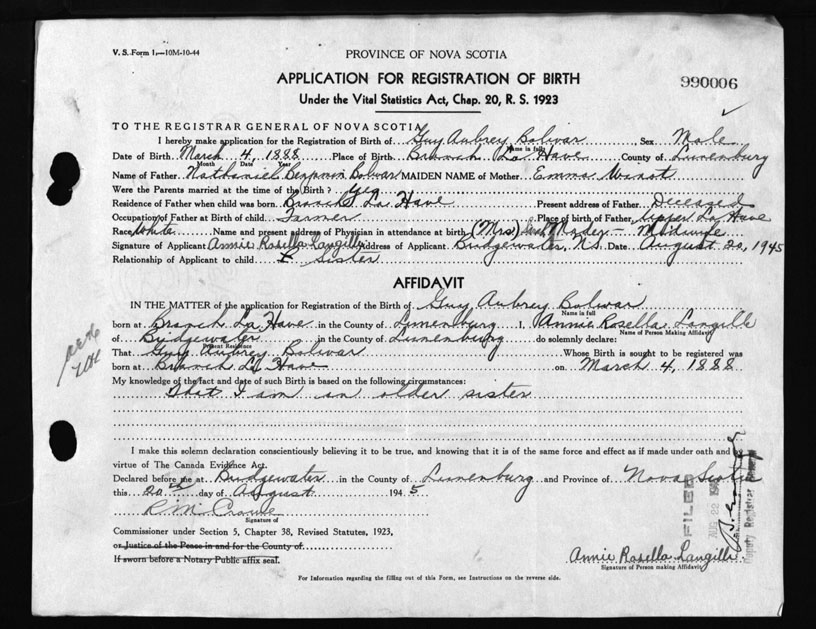 V. S. Form 1.—10M-10-44
PROVINCE OF NOVA SCOTIA
APPLICATION FOR REGISTRATION OF BIRTH
990006
Under the Vital Statistics Act, Chap. 20, R. S. 1923
TO THE REGISTRAR GENERAL OF NOVA SCOTIA
I hereby make application for the Registration of Birth of Guy Aubrey Bolivar Sex Male
Name in full
Date of Birth March 4, 1888 Place of Birth Branch La Have County of Lunenburg
Month Date Year
Name of Father Nathaniel Benjamin Bolivar MAIDEN NAME of Mother Emma Winot
Were the Parents married at the time of the Birth? Yes
Residence of Father when child was born Branch La Have Present address of Father Deceased
Occupation of Father at Birth of child Farmer Place of birth of Father Upper La Have
Race White Name and present address of Physician in attendance at birth (Mrs) Mader - Midwife
Signature of Applicant Annie Rosella Langille Address of Applicant Bridgewater, N.S. Date August 20, 1945
Relationship of Applicant to child Sister
AFFIDAVIT
IN THE MATTER of the application for Registration of the Birth of Guy Aubrey Bolivar
Name in full
born at Branch La Have in the County of Lunenburg I, Annie Rosella Langille
Name of Person Making Affidavit
of Bridgewater in the County of Lunenburg do solemnly declare:
Present Residence
That Guy Aubrey Bolivar Whose Birth is sought to be registered was
born at Branch La Have on March 4, 1888
My knowledge of the fact and date of such Birth is based on the following circumstances:
That I am an older sister
I make this solemn declaration conscientiously believing it to be true, and knowing that it is of the same force and effect as if made under oath and by
virtue of The Canada Evidence Act.
Declared before me at Bridgewater in the County of Lunenburg and Province of Nova Scotia
this 20th day of August 1945
Signature of
Commissioner under Section 5, Chapter 38, Revised Statutes, 1923,
or Justice of the Peace in and for the County of
If sworn before a Notary Public affix seal.
FILED
AUG 22
Deputy Registrar General
Annie Rosella Langille
Signature of Person making Affidavit
For Information regarding the filling out of this Form, see Instructions on the reverse side.